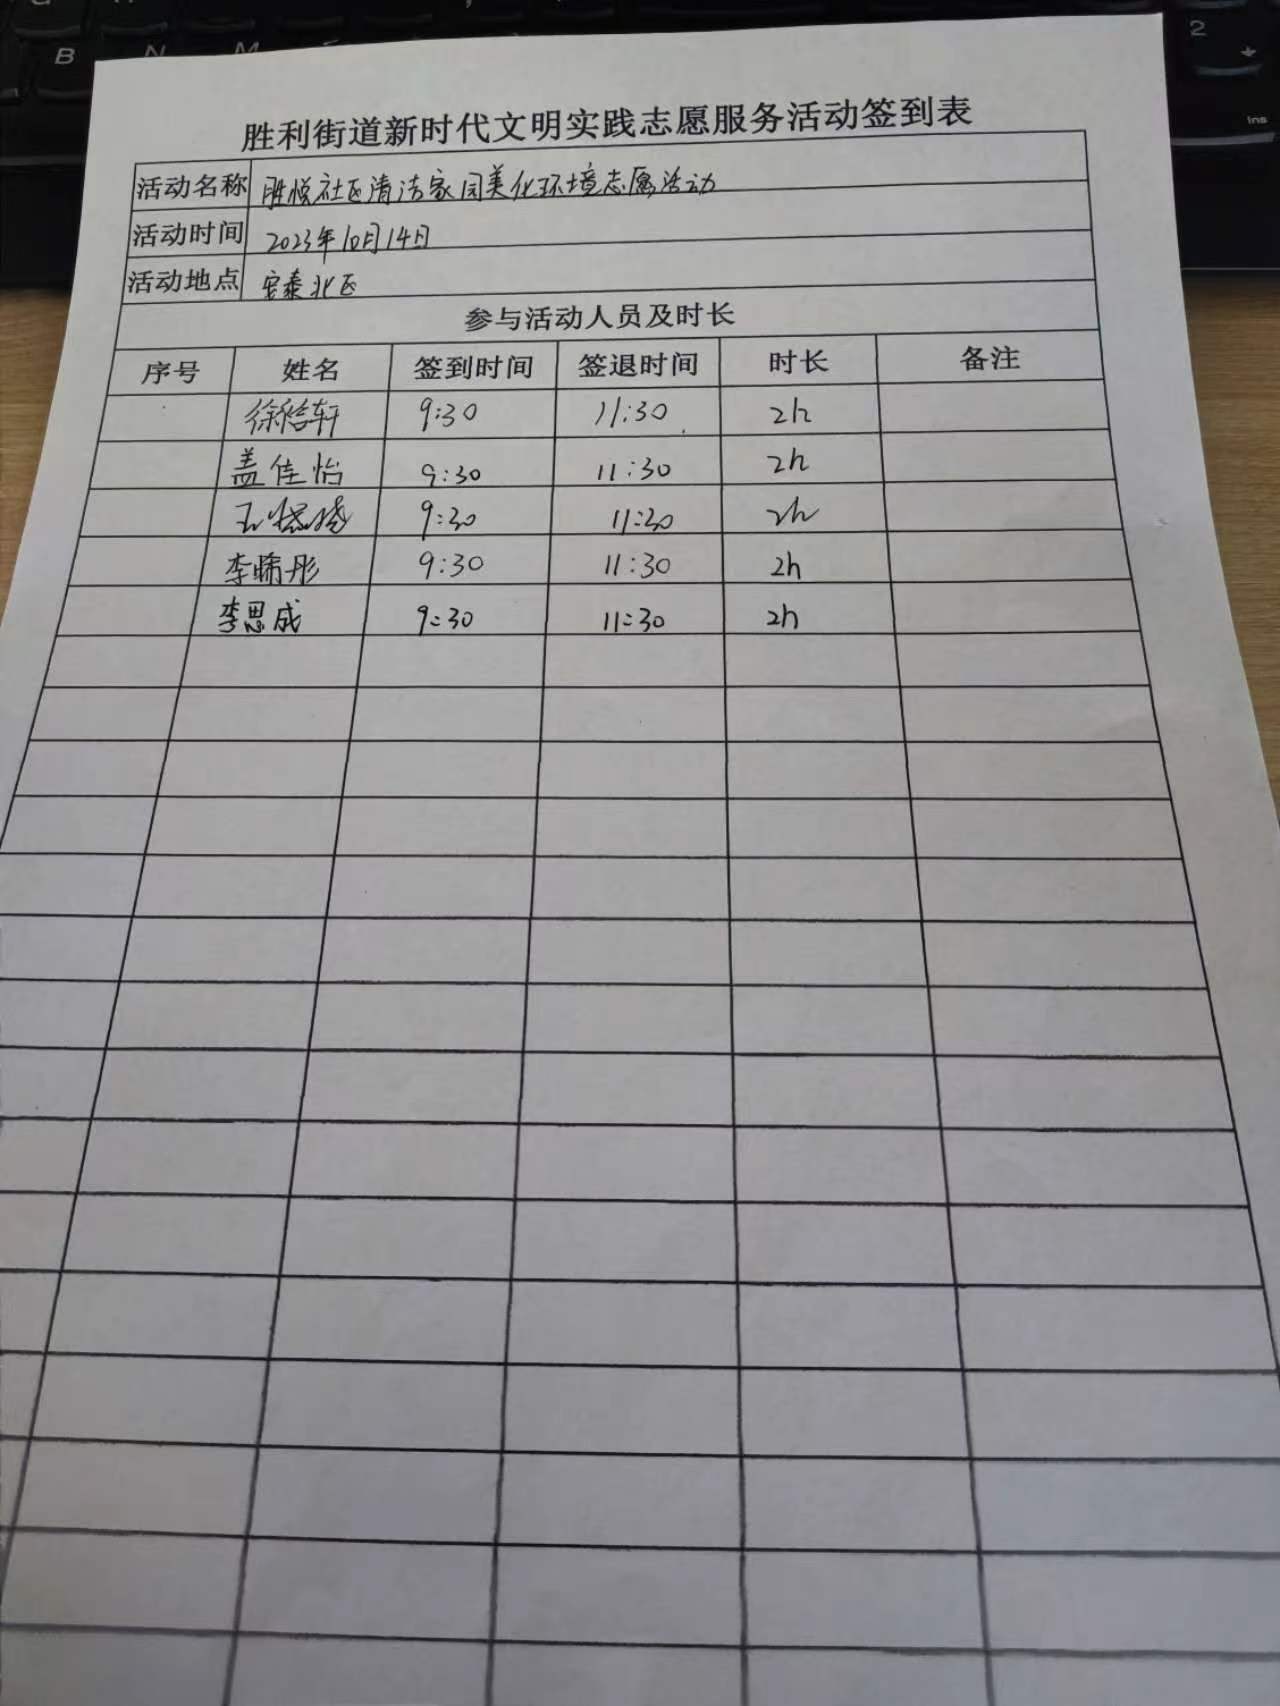 胜利街道新时代文明实践志愿服务活动签到表
活动名称 胜悦社区清洁家园美化环境志愿活动
活动时间 2023年10月14日
活动地点 安泰北区
参与活动人员及时长
序号 姓名 签到时间 签退时间 时长 备注
9:30 11:30 2h
盖佳怡 9:30 11:30 2h
9:30 11:30 2h
李晞彤 9:30 11:30 2h
李思成 9:30 11:30 2h
B N M
2
Ins